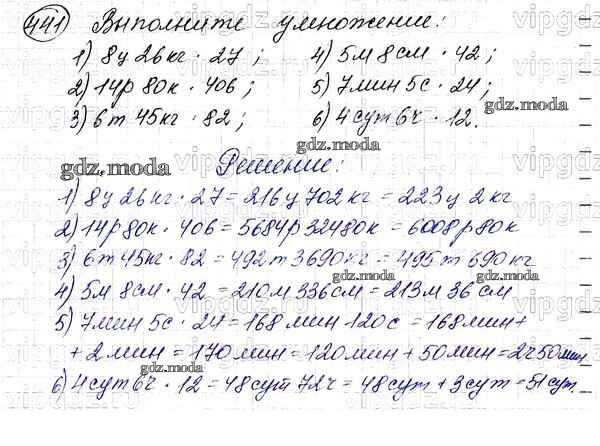 441 Выполните умножение:
1) 8ц 26кг · 27; 4) 5м 8см · 42;
2) 14р 80к · 406; 5) 7мин 5с · 24;
3) 6т 45кг · 82; 6) 4сут 6ч · 12.
gdz.moda
gdz.moda
Решение:
1) 8ц 26кг · 27 = 216ц 702кг = 223ц 2кг
2) 14р 80к · 406 = 5684р 32480к = 6008р 80к
3) 6т 45кг · 82 = 492т 3690кг = 495т 690кг
gdz.moda
4) 5м 8см · 42 = 210м 336см = 213м 36см
gdz.moda
5) 7мин 5с · 24 = 168мин 120с = 168мин +
+ 2мин = 170мин = 120мин + 50мин = 2ч 50мин
6) 4сут 6ч · 12 = 48сут 72ч = 48сут + 3сут = 51сут.